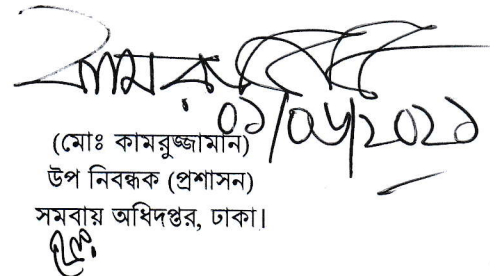 কামরুজ্জামান
০১/০৬/২০২১
(মোঃ কামরুজ্জামান)
উপ নিবন্ধক (প্রশাসন)
সমবায় অধিদপ্তর, ঢাকা।